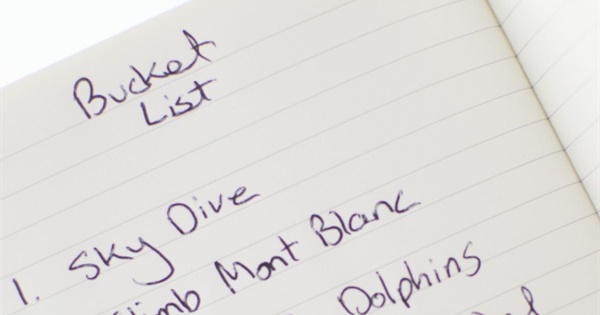 Bucket
List
1. Sky Dive
Climb Mont Blanc
Dolphins